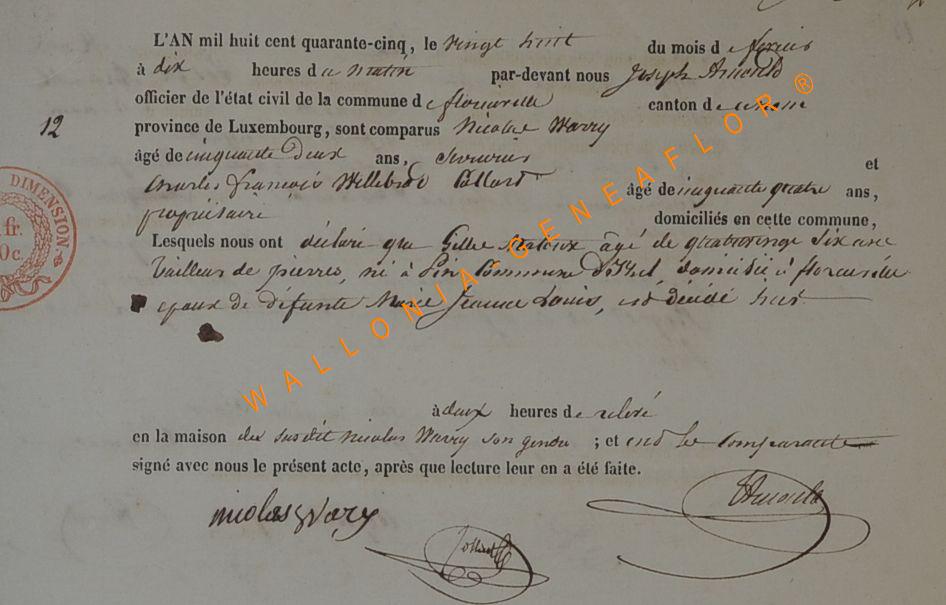 L'AN mil huit cent quarante-cinq, le vingt huit du mois de fevrier
à dix heures du matin par-devant nous Joseph Arnould
officier de l'état civil de la commune de florenville canton de
12 province de Luxembourg, sont comparus Nicolas Warry
âgé de cinquante deux ans, Serrurier et
Charles françois Willebrod Collard âgé de cinquante quatre ans,
propriétaire domiciliés en cette commune,
Lesquels nous ont déclaré que Gille âgé de quatrevingt six ans
tailleur de pierres, né à Pin Commune d'Izel domicilié à florenville
epoux de défunte Marie Jeanne Louis, est décédé hier
à deux heures de relevé
en la maison du susdit Nicolas Warry son gendre ; et ond les comparants
signé avec nous le présent acte, après que lecture leur en a été faite.
nicolas Wary
JArnould
Collard
DIMENSION.
fr.
0c.
WALLONIA-GENEAFLOR®